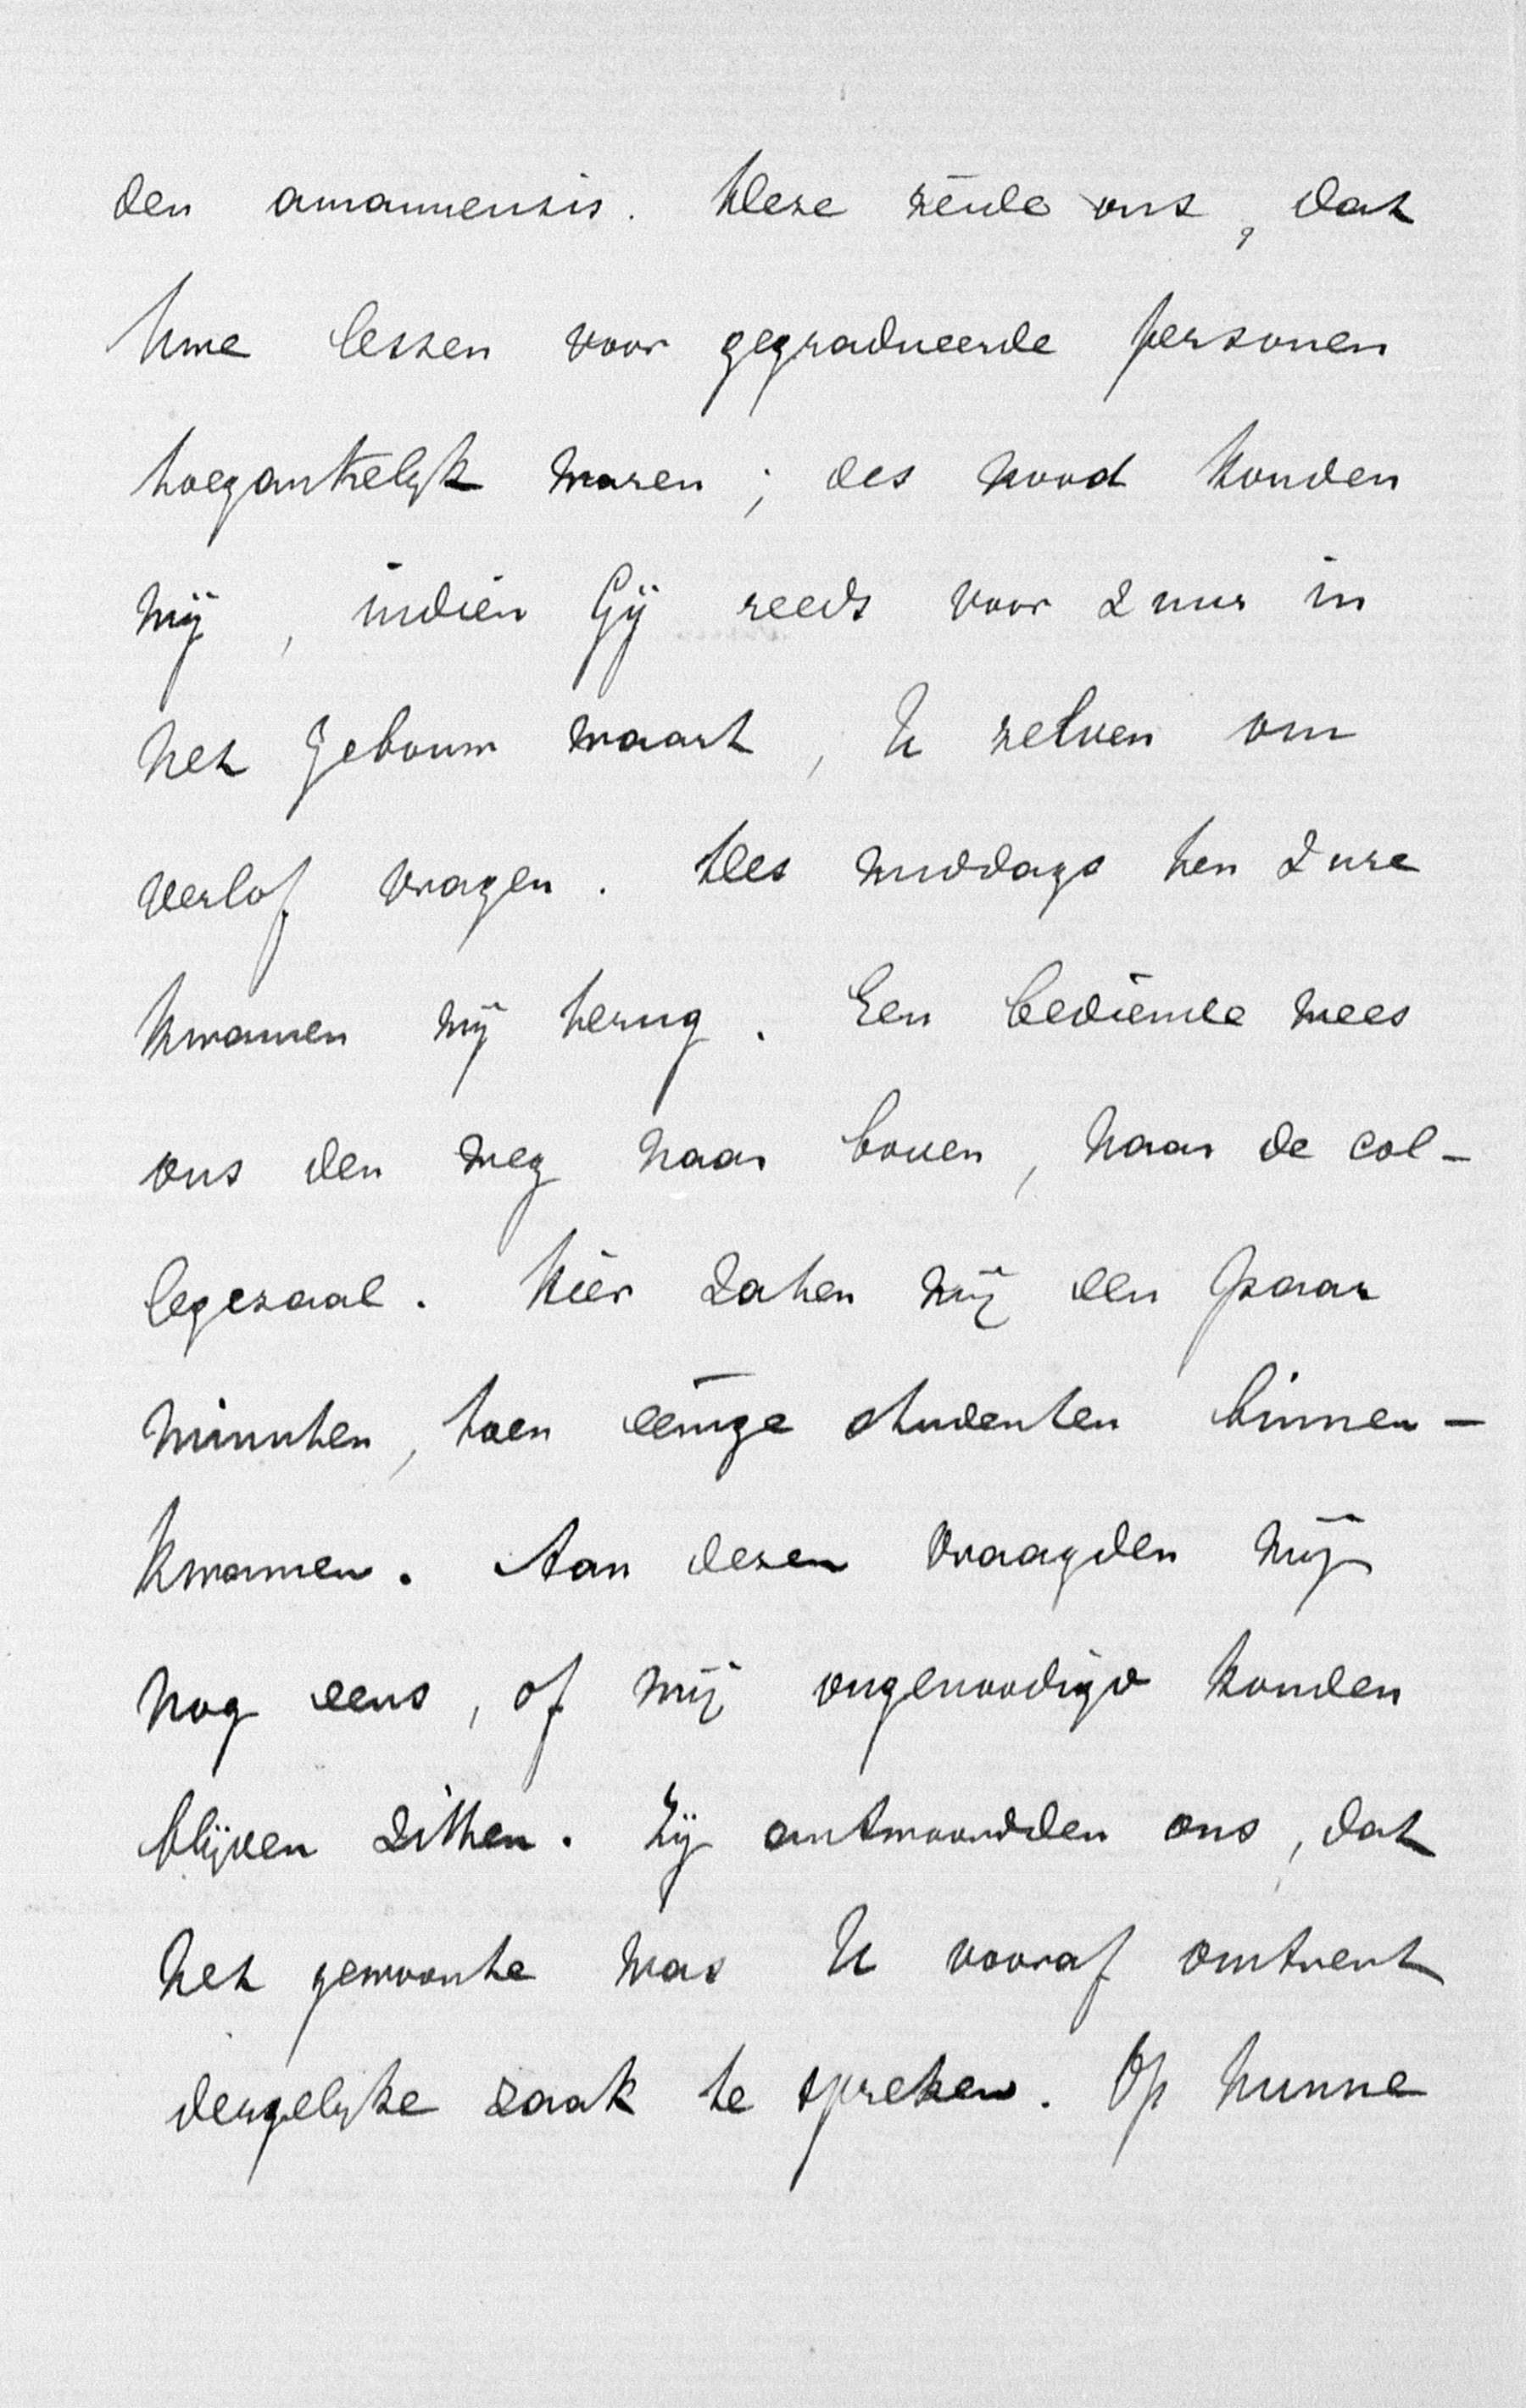 den amanuensis. Deze zeide ons, dat
Uwe lessen voor gegradueerde personen
toegankelijk waren; des nood konden
wij, indien Gij reeds voor 2 uur in
het gebouw waart, U zelven om
verlof vragen. Des middags ten 2 ure
kwamen wij terug. Een bediende wees
ons den weg naar boven, naar de col-
legezaal. Hier zaten wij een paar
minuten, toen eenige studenten binnen-
kwamen. Aan dezen vraagden wij
nog eens, of wij ongenoodigd konden
blijven zitten. Zij antwoordden ons, dat
het gewoonte was U vooraf omtrent
dergelijke zaak te spreken. Op hunne